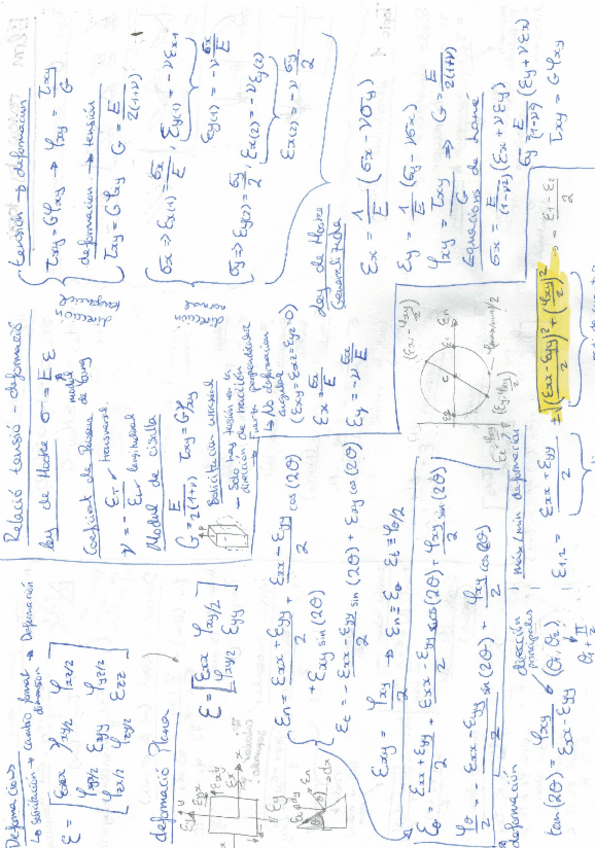 Deformacions
↳ solicitación → cambio formal dimension → Deformación
ε = [εxx γxy/2 γxz/2
γxy/2 εyy γyz/2
γxz/2 γyz/2 εzz]
deformación Plana
ε = [εxx γxy/2
γxy/2 εyy]
εn = (εxx + εyy)/2 + (εxx - εyy)/2 cos(2θ)
+ εxy sin(2θ)
εt = - (εxx - εyy)/2 sin(2θ) + εxy cos(2θ)
εxy = γxy/2 → εn ≡ εθ εt ≡ γθ/2
εθ = (εxx + εyy)/2 + (εxx - εyy)/2 cos(2θ) + γxy/2 sin(2θ)
γθ/2 = - (εxx - εyy)/2 sin(2θ) + γxy/2 cos(2θ)
deformación
tan(2θ) = γxy/(εxx - εyy)
dirección principales
(θ1, θ2)
θ1 + π/2
máx/mín deformación
ε1,2 = (εxx + εyy)/2 ± √((εxx - εyy)/2)² + (γxy/2)² → = (ε1 - ε2)/2
Relació tensió - deformació
Ley de Hooke σ = E ε
modul de Young
Coeficient de Poisson
ν = - εT/εL transversal longitudinal
Modul de cisalla
G = E/2(1+ν) τxy = Gγxy
Solicitacion uniaxial
- Solo hay tensión en la dirección de tracción
fuerte perpendicular
↳ No deformacion angular
(εxx = εxz = εyz = 0)
εx = σx/E
εy = -ν σx/E
"tensión → deformacion
τxy = Gγxy → γxy = τxy/G
deformacion → tensión
τxy = G γxy G = E/2(1+ν)
σx ⇒ εx(1) = σx/E, εy(1) = -ν εx1
εy(1) = -ν σx/E
σy ⇒ εy(2) = σy/2, εx(2) = -ν εy(2)
εx(2) = -ν σy/2
Ley de Hooke Generalizada
εx = 1/E (σx - νσy)
εy = 1/E (σy - νσx)
γxy = τxy/G ⇒ G = E/2(1+ν)
Equacions de Lamé
σx = E/(1-ν²) (εx + νεy)
σy = E/(1-ν²) (εy + νεx)
τxy = G γxy